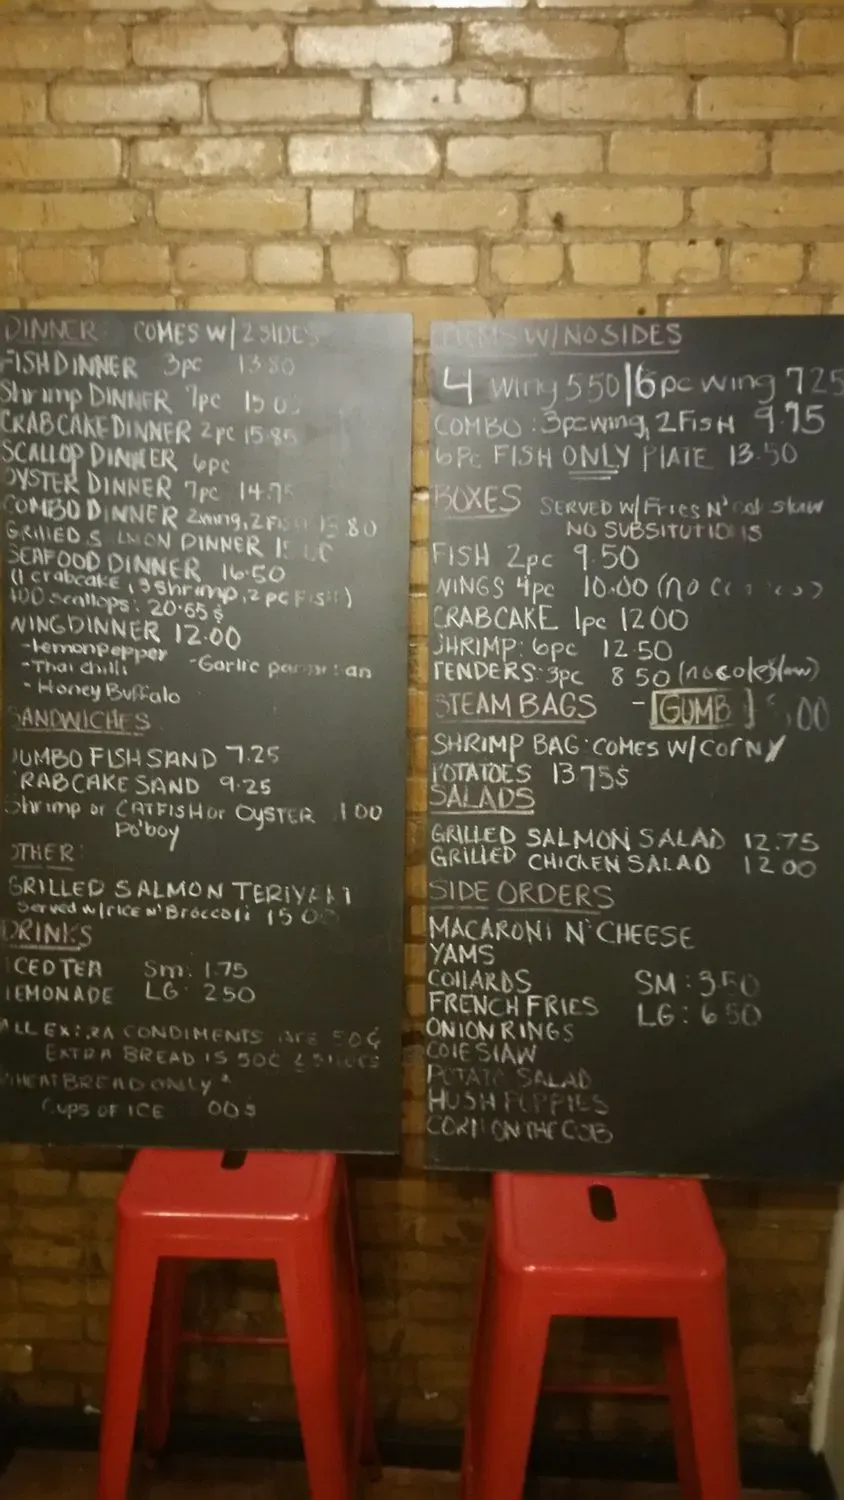 DINNER: COMES W/ 2 SIDES
FISH DINNER 3pc 13.80
Shrimp DINNER 7pc
CRABCAKE DINNER 2pc 15.85
SCALLOP DINNER 6pc
OYSTER DINNER 7pc
COMBO DINNER 2wing, 2 FISH
GRILLED DINNER
SEAFOOD DINNER 16.50
(1 crabcake, 3 Shrimp, 2pc Fish)
ADD Scallops: 20.65$
WING DINNER 12.00
-lemonpepper
-Thai chilli -Garlic
- Honey Buffalo
SANDWICHES
JUMBO FISH SAND 7.25
CRABCAKE SAND 9.25
Shrimp or CATFISH or OYSTER
Po'boy
OTHER
GRILLED SALMON TERIYAKI
Served w/ RICE N' Broccoli
DRINKS
ICED TEA Sm: 1.75
LEMONADE LG: 2.50
ALL EXTRA CONDIMENTS ARE 50¢
EXTRA BREAD IS 50¢ 2 SLICES
WHEAT BREAD ONLY *
Cups OF ICE
ITEMS W/ NO SIDES
4 wing 5 50 | 6pc wing 7 25
COMBO: 3pc wing, 2 FISH
6pc FISH ONLY PLATE 13.50
BOXES SERVED W/ Fries N' cole slaw
NO SUBSITUTIONS
FISH 2pc 9.50
WINGS 4pc 10.00
CRABCAKE 1pc 12 00
SHRIMP: 6pc 12.50
TENDERS: 3pc 8 50 (no coleslaw)
STEAM BAGS - GUMBO
SHRIMP BAG: COMES W/ CORN/
POTATOES 13 75$
SALADS
GRILLED SALMON SALAD 12.75
GRILLED CHICKEN SALAD 12 00
SIDE ORDERS
MACARONI N' CHEESE
YAMS
COLLARDS SM: 3 50
FRENCH FRIES LG: 6 50
ONION RINGS
COLESLAW
POTATO SALAD
HUSH PUPPIES
CORN ON THE COB